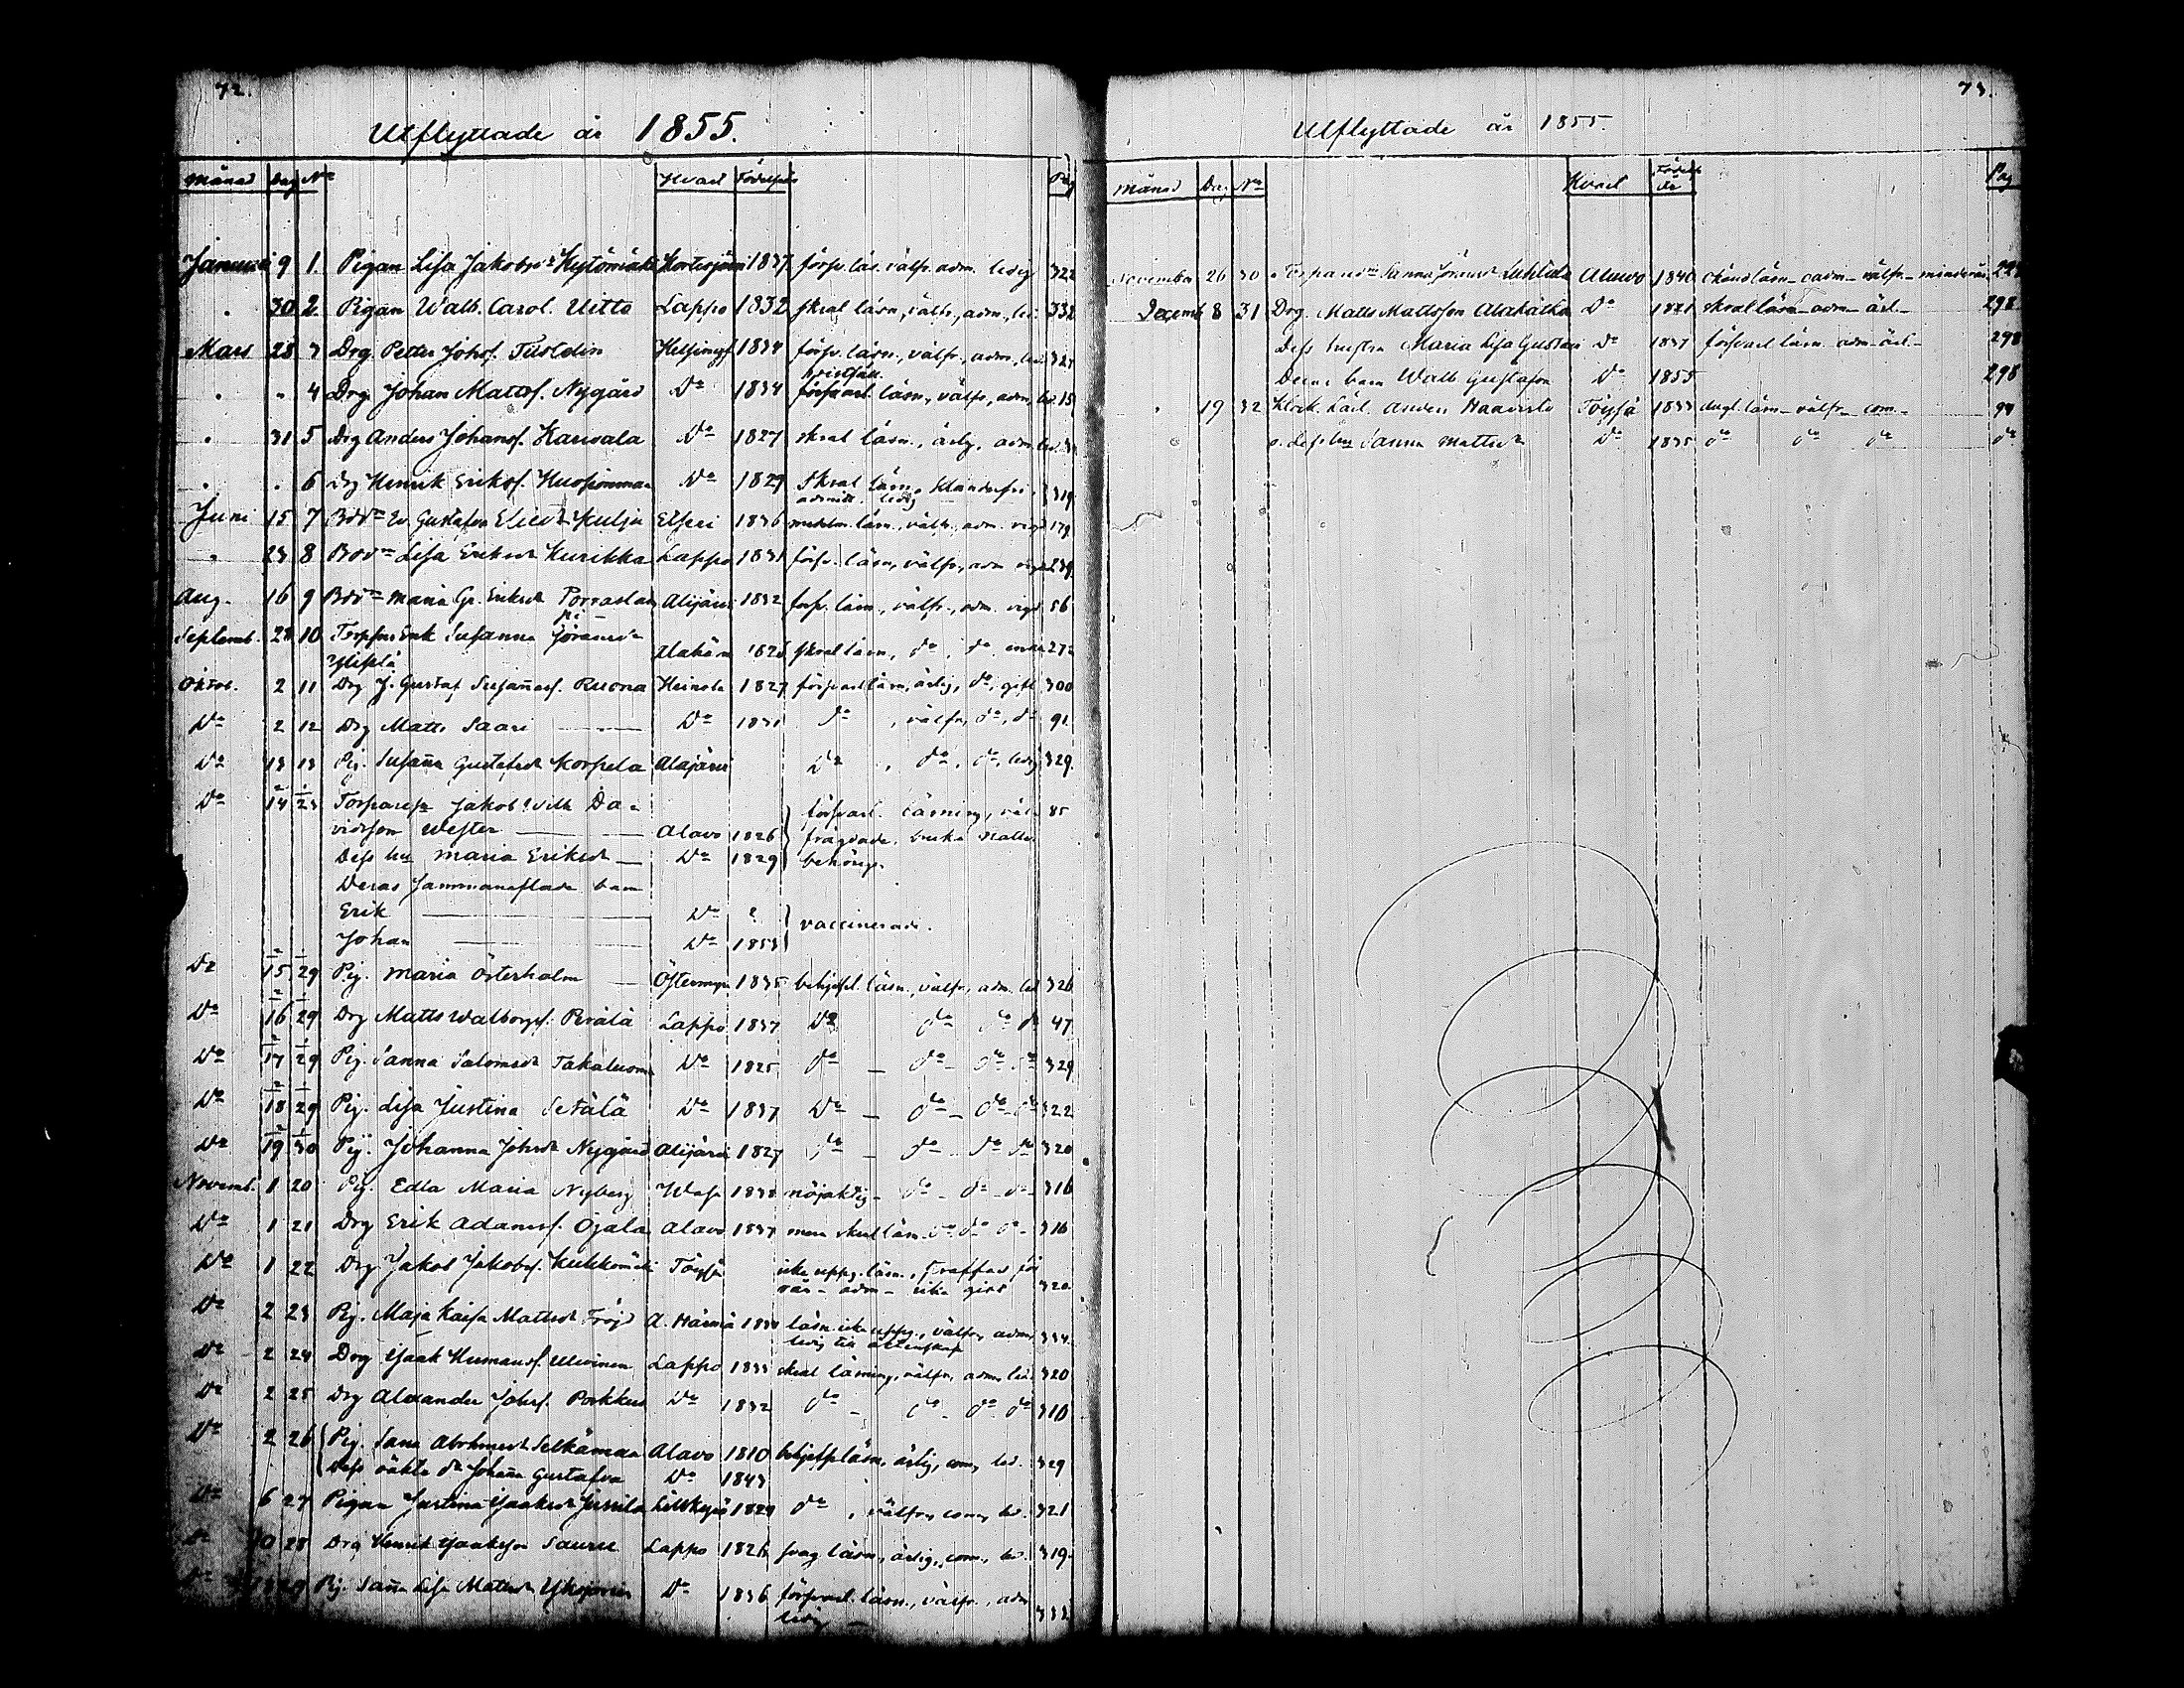 72.
Utflyttade år 1855.
Månad Dag No Hvart Födelseår Pag
Januari 9 1. Pigan Lisa Jakobsdr Kytömäki Kortesjärvi 1837 försv. läs. välfr. adm. ledig 322
" 30 2. Pigan Walb. Carol. Uitto Lappo 1832 skral läsn., välfr., adm., led. 332
Mars 28 3 Drg. Petter Johsf. Tustdin Helsingf. 1834 försv. läsn., välfr., adm., led. 327
" " 4 Drg. Johan Mattsf. Nygård Do 1834 försvarl. läsn., välfr., adm., led. 15
" 31 5 Drg Anders Johansf. Karvala Do 1827 skral läsn., ärlig, adm. led.
" " 6 Drg Henrik Eriksf. Do 1829 Skral läsn., klanderfri, 319
admitt. ledig
Juni 15 7 Etseri 1836 medelm. läsn., välfr., adm. vigd 179
" 23 8 Lisa Eriksdr Kurikka Lappo 1831 försv. läsn., välfr., adm. vigd 239.
Aug. 16 9 Maria Gr. Eriksdr Alijärvi 1832 försv. läsn., välfr., adm. vigd 56
Septemb. 28 10 Susanna Jöransdr
Alahärm 1826 skral läsn., do, do, enka 272
Oktob. 2 11 Drg J. Gustaf Susannasf. Ruona Heinola 1827 försvarl läsn., ärlig, do, gift 300
Do 2 12 Drg Matts Saari Do 1831 do , välfr., do, do 91.
Do 13 13 Pig. Susaña Gustafsdr Korpela Alajärvi Do , do, do, ledig 329.
Do 14 23 Jakob Wilh. Da-
vidsson Wester Alavo 1826 försvarl. läsning, väl- 85
frägdade, bruka nattv.
Dess hu Maria Eriksdr Do 1829 behörigt.
Deras sammanaflade barn
Erik Do ? vaccinerade.
Johan Do 1853
Do 15 29 Pig. Maria Österholm Östermyra 1835 behjelpl. läsn., välfr., adm. led 326
Do 16 29 Drg Matts Walborgsf. Perälä Lappo 1837 Do do do do 47
Do 17 29 Pig. Sanna Salomsdr Takaluoma Do 1825 do – do – do do 329
Do 18 29 Pig. Lisa Justina Setälä Do 1837 Do – do – do – do 322
Do 19 30 Pig. Johanna Johsdr Nygård Alijärvi 1827 do – do – do do 320
Novemb. 1 20 Pig. Edla Maria Nyberg Wasa 1838 nöjaktig – do – do – do – 316
Do 1 21 Drg Erik Adamsf. Ojala Alavo 1837 mera skral läsn. do do do – 316
Do 1 22 Drg Jakob Jakobsf. Kuhkomäki Töysä icke uppg. läsn., straffad för 320
adm –
Do 2 23 Pig. Maja Kaisa Mattsdr Fröjd A. Härmä läsn. icke uppg., välfr., adm. 334.
ledig till äktenskap
Do 2 24 Drg Isaak Hermansf. Ulvinen Lappo 1833 skral läsning, välfr., adm., led. 320
Do 2 25 Drg Alexander Johsf. Porkkus Do 1832 do – do – do do 310
Do 2 26 Pig. Sana Abrhmsdr Selkämaa Alavo 1810 behjelpl. läsn., ärlig, com., led. 329
Dess oäkta dr Johaña Gustafva Do 1843
Do 6 27 Pigan Justina Isaaksdr Jussila Lillkyro 1829 do , välfr., com., led. 321
Do 10 28 Drg Henrik Isaaksson Sauru Lappo 1826 svag läsn., ärlig, com., led. 319.
Do 29 Pig. Saña Lisa Mattsdr Do 1836 försvarl. läsn., välfr., adm 332
ledig –
73.
Utflyttade år 1855.
Månad Dag No Hvart Födelse år Pag
November 26 30 Sanna Jöransdr Alavo 1840 okänd läsn – oadm – välfr. – minderår. 227
Decemb 8 31 Drg. Matts Mattsson Alakätkä Do 1821 skral läsn – adm – ärl. – 298
Dess hustru Maria Lisa Gustavs Do 1837 försvarl läsn. adm – ärl – 298
Deras barn Walb Gustafva Do 1855 298
" 19 32 Anders Haavisto Töysä 1833 dugl. läsn – välfr – com. – 94
o. dess hu Sanna Mattsdr Do 1835 do do do do